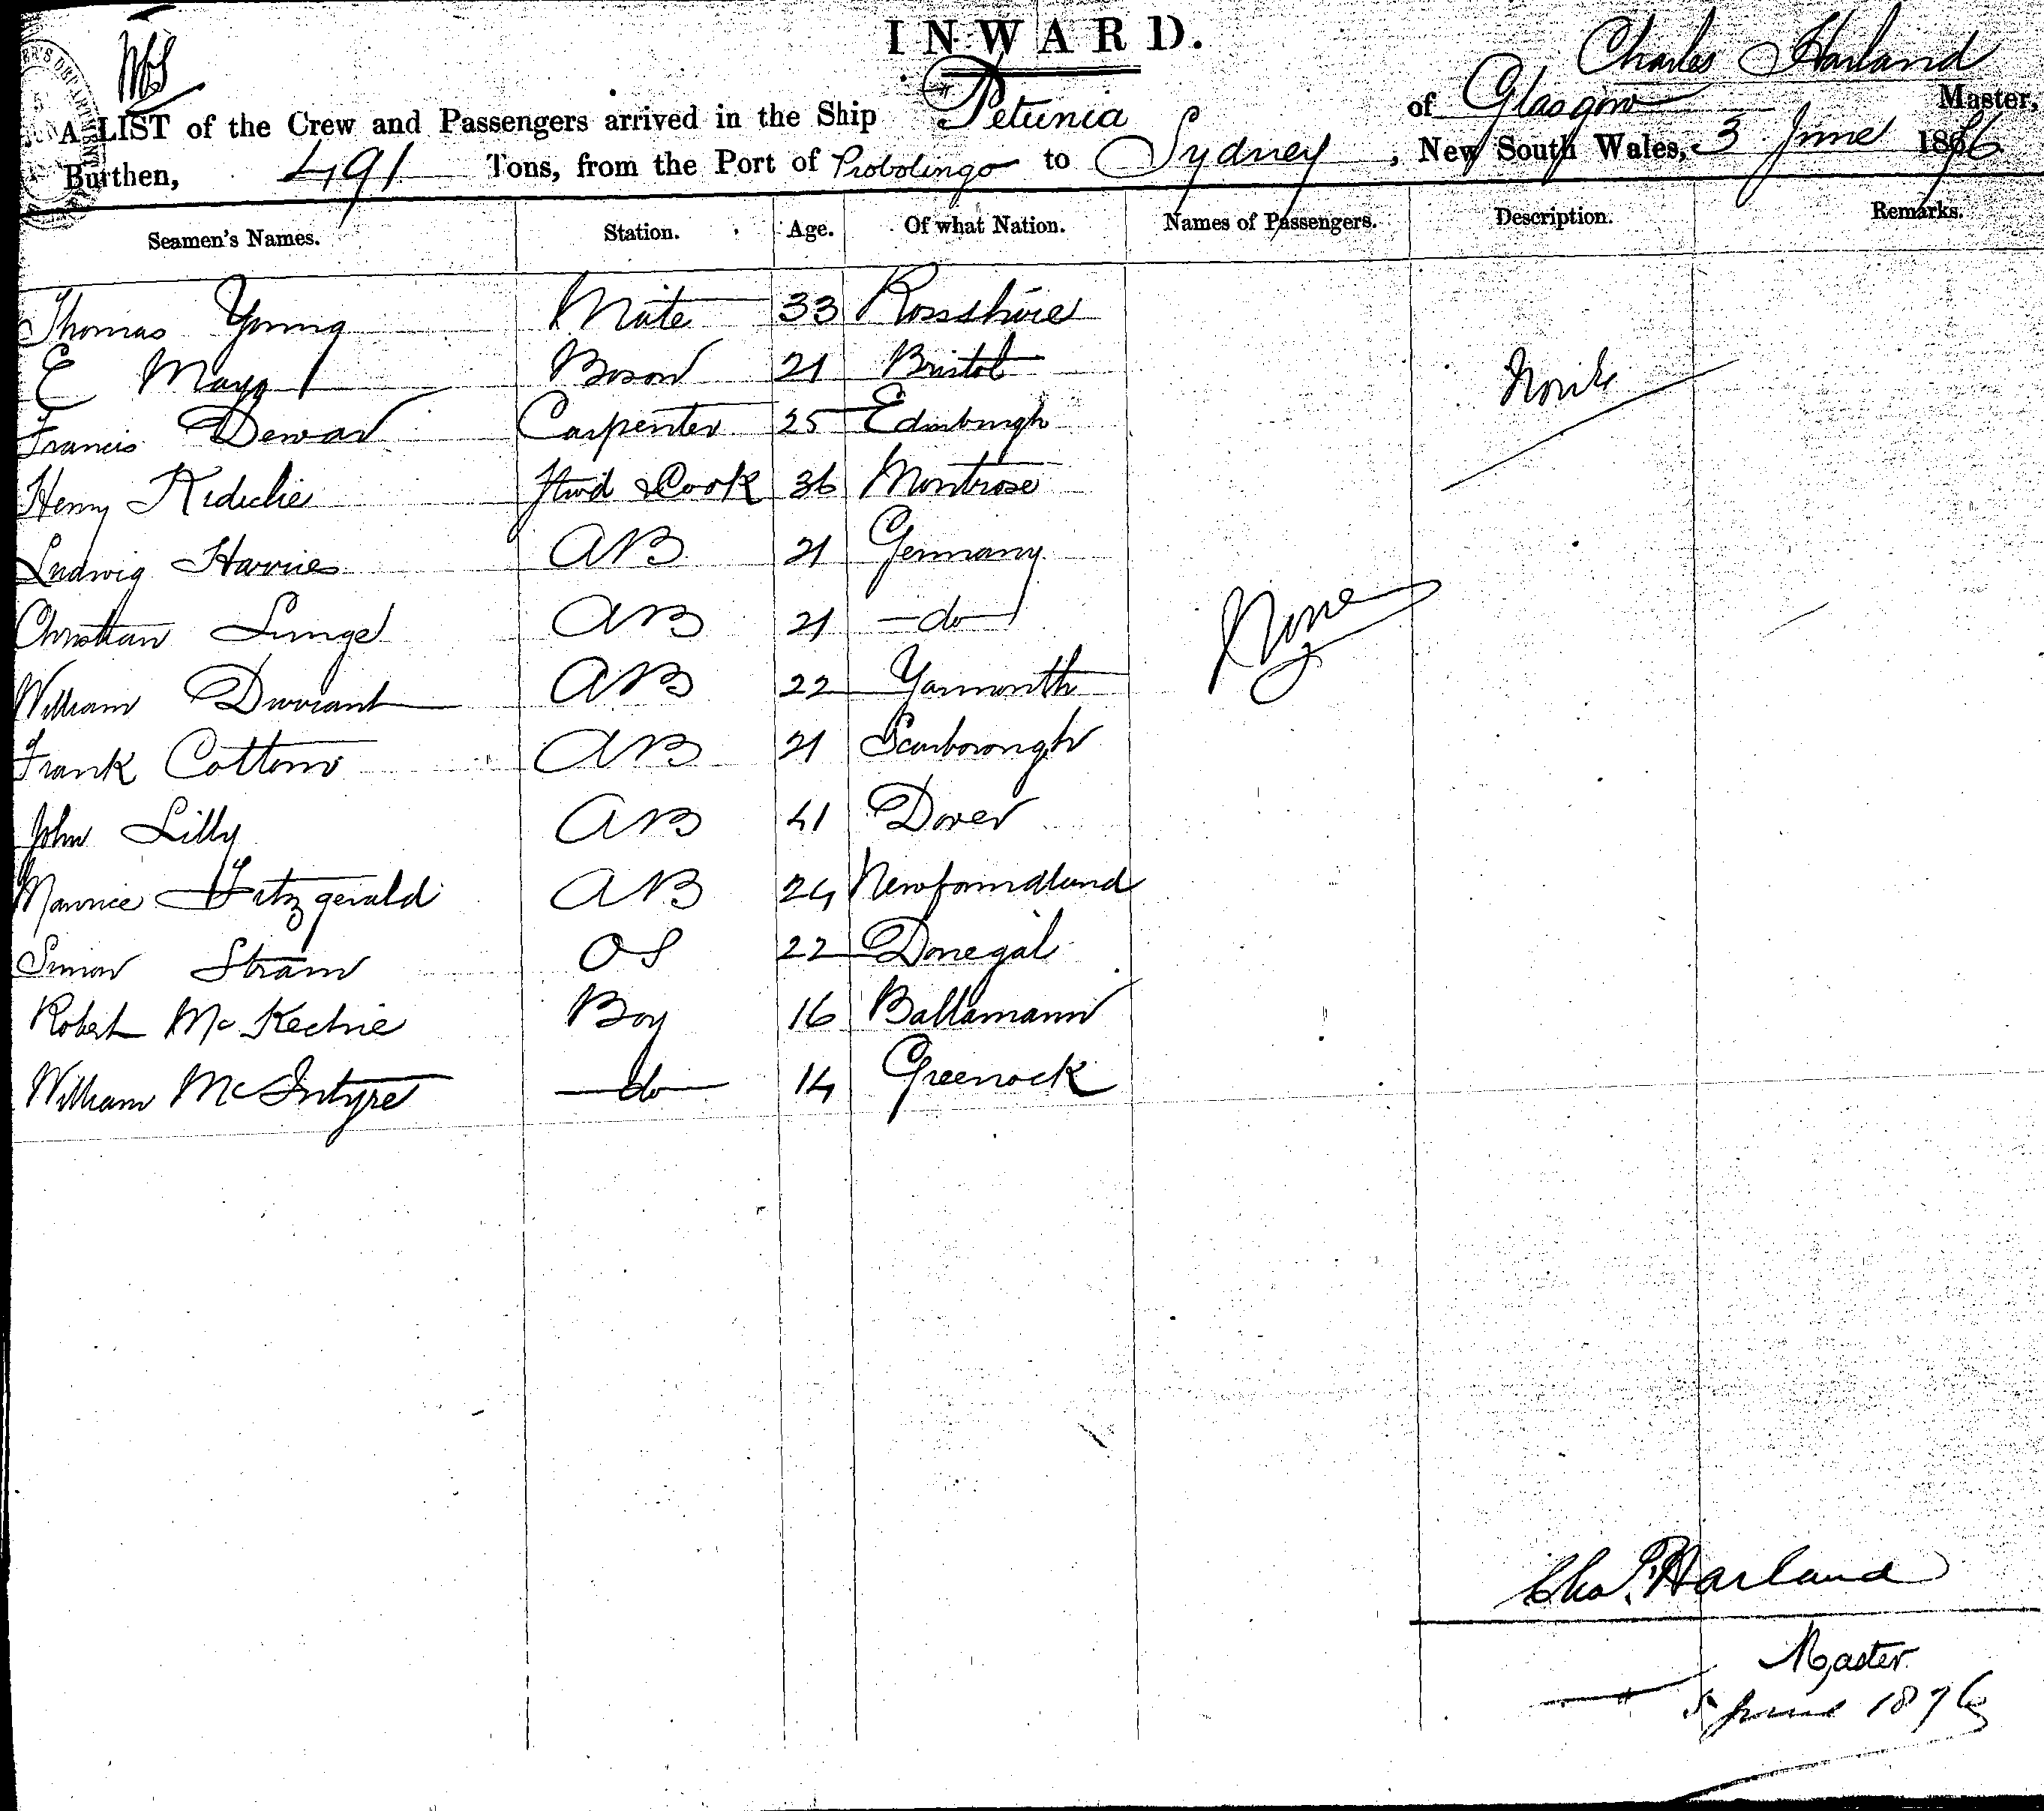 INWARD.
Charles Harland
A LIST of the Crew and Passengers arrived in the Ship Petunia of Glasgow Master,
Burthen, 491 Tons, from the Port of Probolingo to Sydney, New South Wales, 3 June 1876
Seamen's Names. Station. Age. Of what Nation. Names of Passengers. Description. Remarks.
Thomas Young Mate 33 Rossshire
E Mayo Boson 21 Bristol
Francis Dewar Carpenter 25 Edinburgh
Henry Kidichie Stwd & Cook 36 Montrose
Ludwig Harries AB 21 Germany
Christian Lunge AB 21 do
None
William Durrant AB 22 Yarmouth
Frank Cotton AB 21 Scarborough
John Lilly AB 41 Dover
Maurice Fitzgerald AB 24 Newfoundland
Simon Stram OS 22 Donegal
Robert McKechnie Boy 16
William McIntyre do 14 Greenock
Chas. Harland
Master
5 June 1876